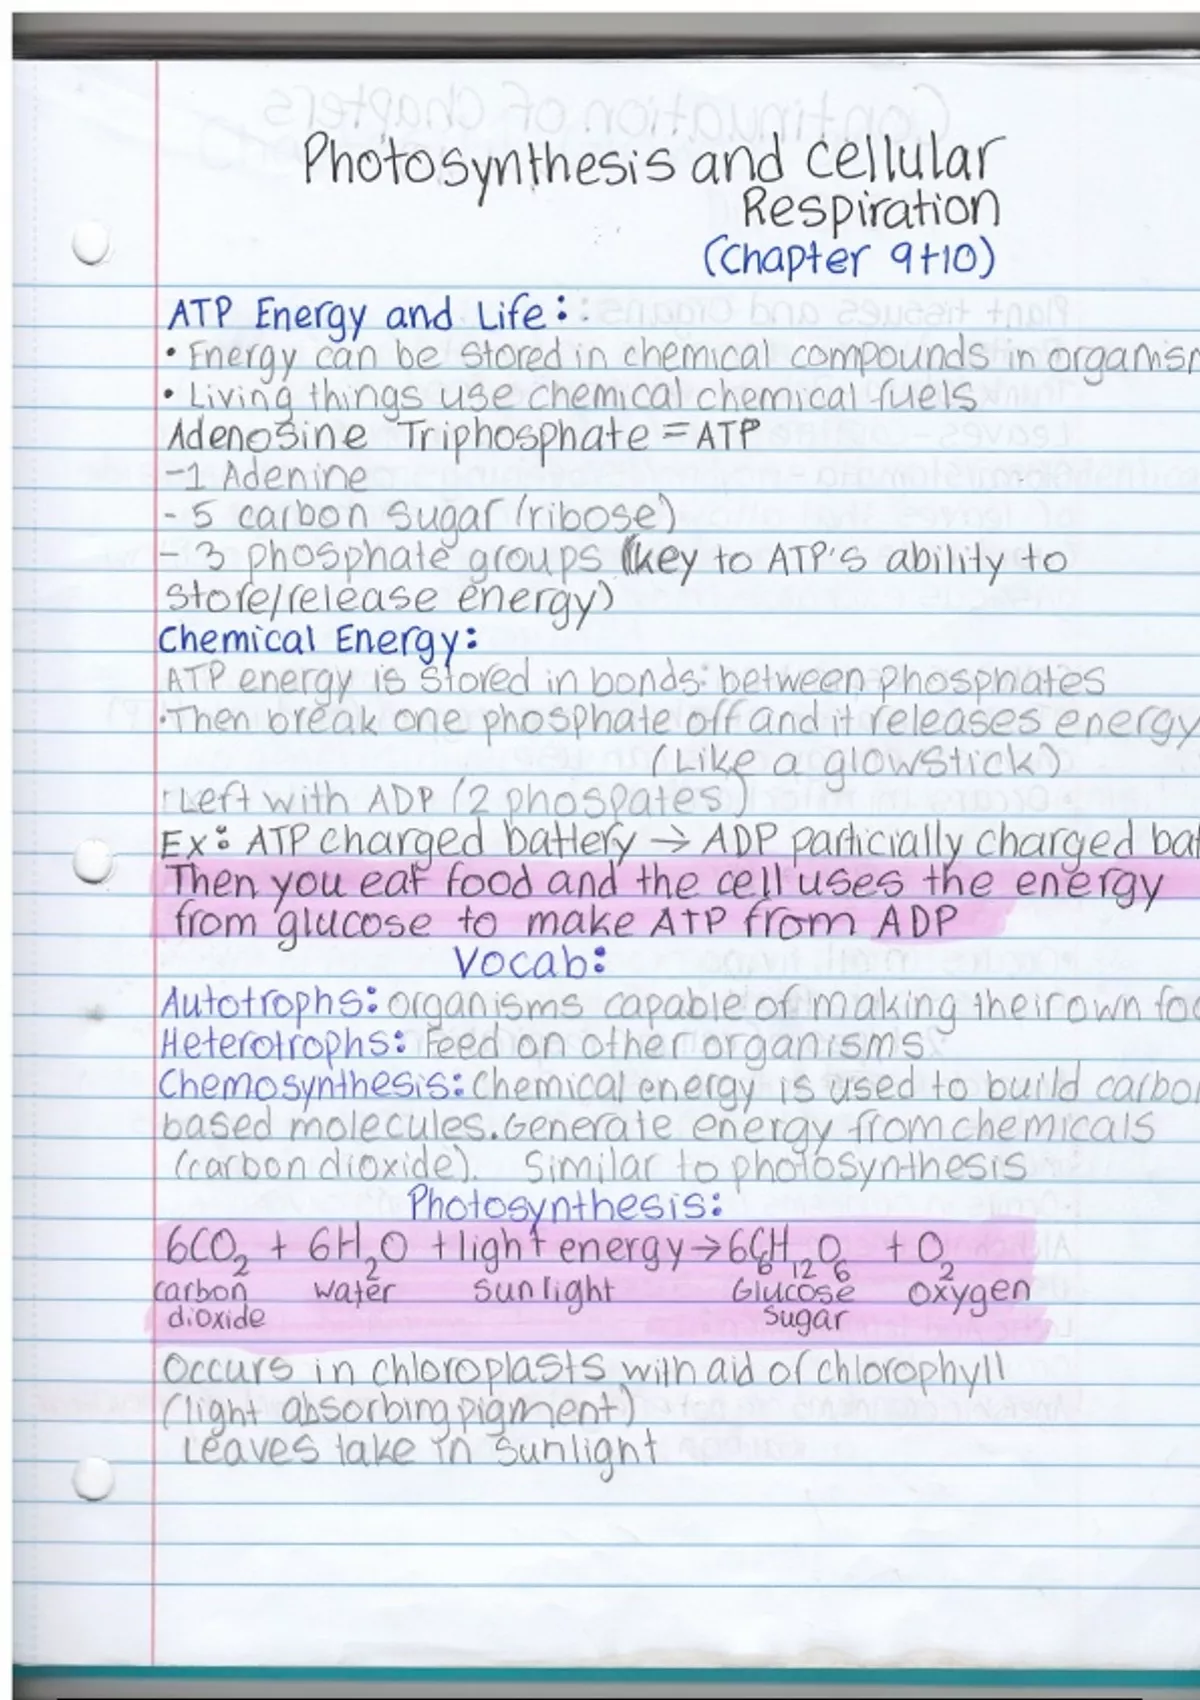 Photosynthesis and cellular
Respiration
(Chapter 9+10)
ATP Energy and Life:
• Energy can be stored in chemical compounds in organism
• Living things use chemical chemical fuels
Adenosine Triphosphate = ATP
-1 Adenine
- 5 carbon sugar (ribose)
- 3 phosphate groups (key to ATP's ability to
store/release energy)
Chemical Energy:
ATP energy is stored in bonds: between phosphates
•Then break one phosphate off and it releases energy
(Like a glowstick)
•Left with ADP (2 phospates)
Ex: ATP charged battery → ADP particially charged bat
Then you eat food and the cell uses the energy
from glucose to make ATP from ADP
Vocab:
Autotrophs: organisms capable of making their own foo
Heterotrophs: Feed on other organisms
Chemosynthesis: Chemical energy is used to build carbon
based molecules. Generate energy from chemicals
(carbon dioxide). Similar to photosynthesis
Photosynthesis:
6CO₂ + 6H₂O + light energy → 6C₆H₁₂O₆ + O₂
carbon water sunlight Glucose oxygen
dioxide sugar
Occurs in chloroplasts with aid of chlorophyll
(light absorbing pigment)
Leaves take in sunlight